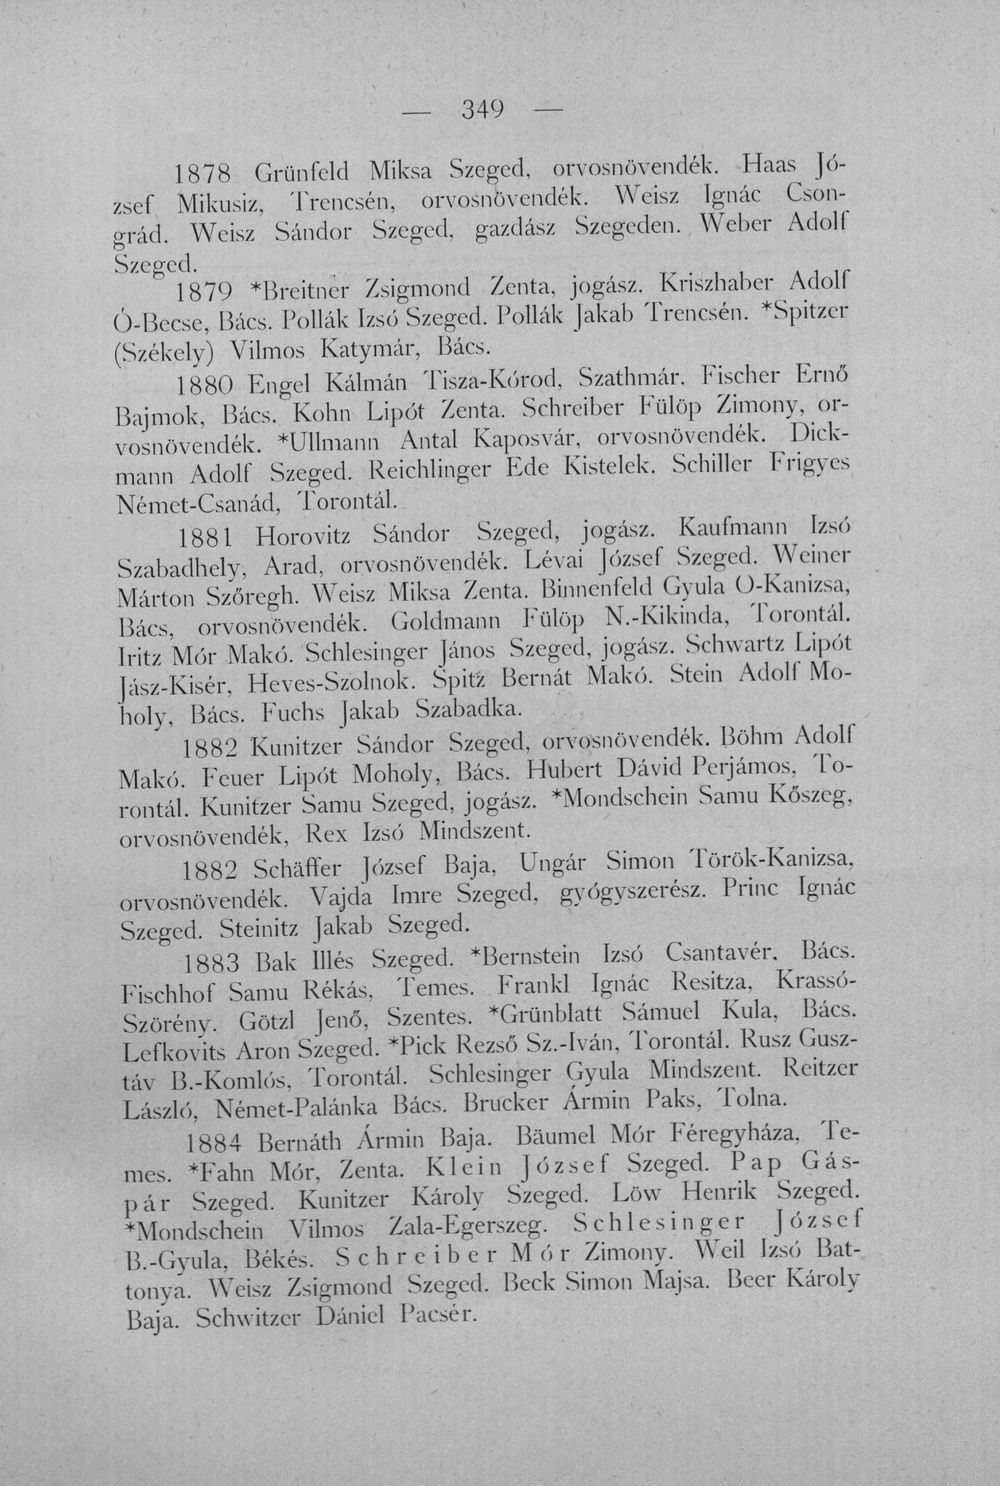 — 349 —
1878 Grünfeld Miksa Szeged, orvosnövendék. Haas Jó-
zsef Mikusiz, Trencsén, orvosnövendék. Weisz Ignác Cson-
grád. Weisz Sándor Szeged, gazdász Szegeden. Weber Adolf
Szeged.
1879 *Breitner Zsigmond Zenta, jogász. Kriszhaber Adolf
Ó-Becse, Bács. Pollák Izsó Szeged. Pollák Jakab Trencsén. *Spitzer
(Székely) Vilmos Katymár, Bács.
1880 Engel Kálmán Tisza-Kórod, Szathmár. Fischer Ernő
Bajmok, Bács. Kohn Lipót Zenta. Schreiber Fülöp Zimony, or-
vosnövendék. *Ullmann Antal Kaposvár, orvosnövendék. Dick-
mann Adolf Szeged. Reichlinger Ede Kistelek. Schiller Frigyes
Német-Csanád, Torontál.
1881 Horovitz Sándor Szeged, jogász. Kaufmann Izsó
Szabadhely, Arad, orvosnövendék. Lévai József Szeged. Weiner
Márton Szőregh. Weisz Miksa Zenta. Binnenfeld Gyula O-Kanizsa,
Bács, orvosnövendék. Goldmann Fülöp N.-Kikinda, Torontál.
Iritz Mór Makó. Schlesinger János Szeged, jogász. Schwartz Lipót
Jász-Kisér, Heves-Szolnok. Spitz Bernát Makó. Stein Adolf Mo-
holy, Bács. Fuchs Jakab Szabadka.
1882 Kunitzer Sándor Szeged, orvosnövendék. Böhm Adolf
Makó. Feuer Lipót Moholy, Bács. Hubert Dávid Perjámos, To-
rontál. Kunitzer Samu Szeged, jogász. *Mondschein Samu Kőszeg,
orvosnövendék, Rex Izsó Mindszent.
1882 Schäffer József Baja, Ungár Simon Török-Kanizsa,
orvosnövendék. Vajda Imre Szeged, gyógyszerész. Princ Ignác
Szeged. Steinitz Jakab Szeged.
1883 Bak Illés Szeged. *Bernstein Izsó Csantavér, Bács.
Fischhof Samu Rékás, Temes. Frankl Ignác Resitza, Krassó-
Szörény. Götzl Jenő, Szentes. *Grünblatt Sámuel Kula, Bács.
Lefkovits Aron Szeged. *Pick Rezső Sz.-Iván, Torontál. Rusz Gusz-
táv B.-Komlós, Torontál. Schlesinger Gyula Mindszent. Reitzer
László, Német-Palánka Bács. Brucker Ármin Paks, Tolna.
1884 Bernáth Ármin Baja. Bäumel Mór Féregyháza, Te-
mes. *Fahn Mór, Zenta. Klein József Szeged. Pap Gás-
pár Szeged. Kunitzer Károly Szeged. Löw Henrik Szeged.
*Mondschein Vilmos Zala-Egerszeg. Schlesinger József
B.-Gyula, Békés. Schreiber Mór Zimony. Weil Izsó Bat-
tonya. Weisz Zsigmond Szeged. Beck Simon Majsa. Beer Károly
Baja. Schwitzer Dániel Pacsér.